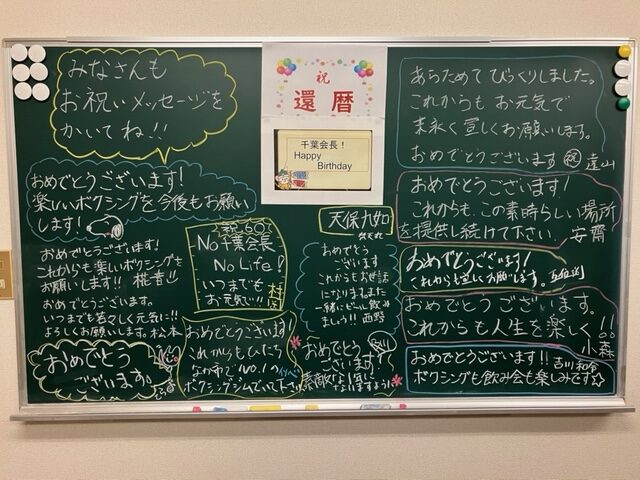 みなさんも
お祝いメッセージを
かいてね!!
祝
還暦
千葉会長!
Happy
Birthday
あらためて びっくりしました。
これからも お元気で
末永く宜しくお願いします。
おめでとうございます 祝 遠山
おめでとうございます!
楽しいボクシングを今後もお願い
します!
おめでとうございます!
これからも、この素晴らしい場所
を提供し続けて下さい。 安齋
おめでとうございます!
これからも楽しいボクシングを
お願いします!! 椛青
おめでとうございます。
いつまでも若々しく元気に!!
よろしくお願いします。松本
祝60
No 千葉会長
No Life!
いつまでも
お元気で!!
天保九如
おめでとう
ございます
これからもお世話
になります。また
一緒にビール飲み
ましょう!! 西野
おめでとうございます!
これからも宜しくお願いします。
おめでとうございます。
これからも人生を楽しく!!
小森
おめでとう
ございます。
おめでとうございます!
これからも人にたち
なか市でNo.1の
ボクシングジムでいて下さい
おめでとう
ございます!
素敵な1年に
なりますように
おめでとうございます!! 吉川和令
ボクシングも飲み会も楽しみです☆